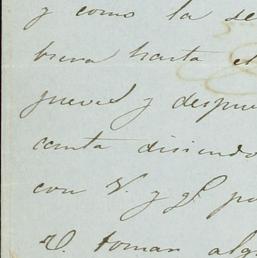 y como la se
buena hasta el
jueves y despue
canta disiendo
con V. y g. po
V. toman alg